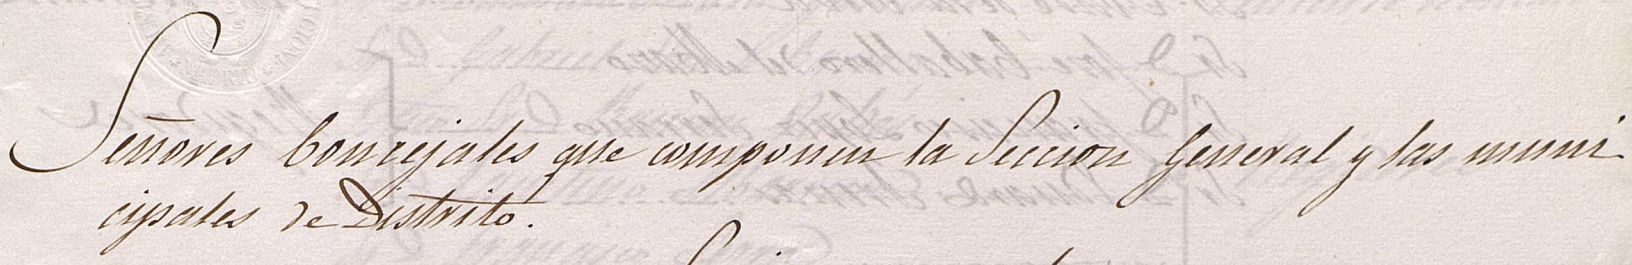 Señores Concejales que componen la Seccion General y las muni
cipales de Distrito.